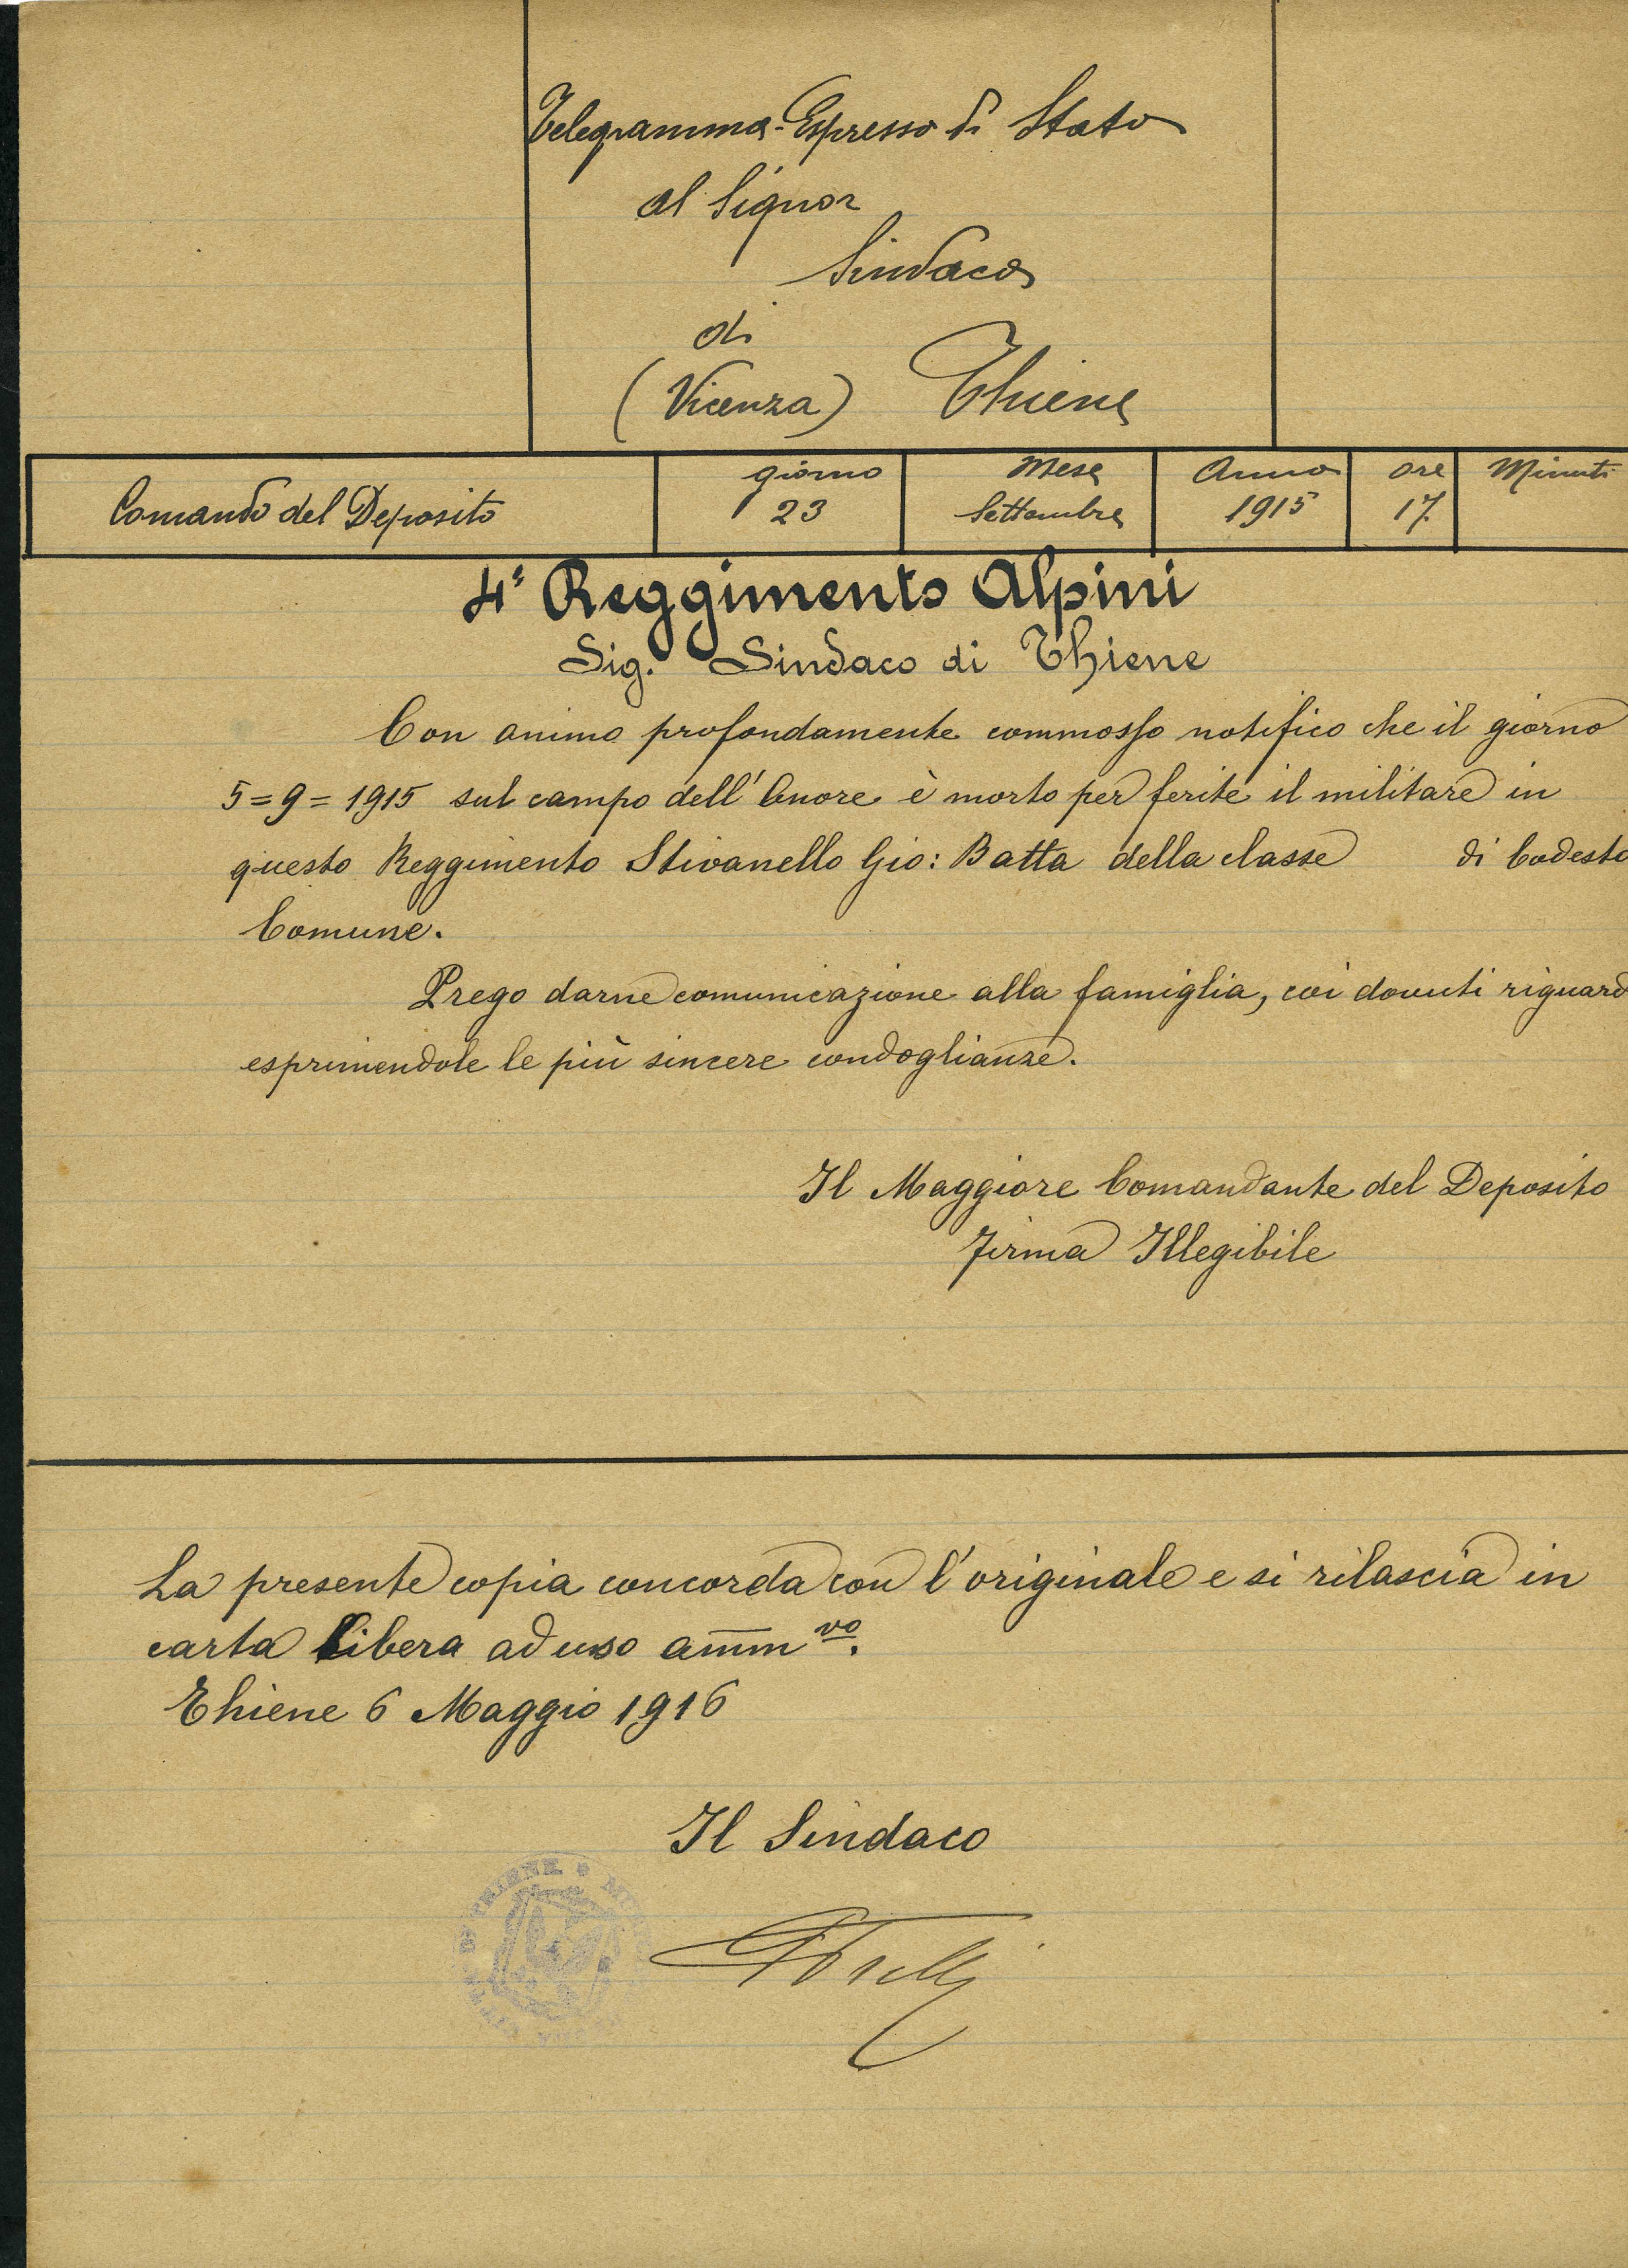 Telegramma-Espresso di Stato
al Signor
Sindaco
di
(Vicenza) Thiene
Comando del Deposito
giorno Mese Anno ore Minuti
23 Settembre 1915 17
4° Reggimento Alpini
Sig. Sindaco di Thiene
Con animo profondamente commosso notifico che il giorno
5=9=1915 sul campo dell'Onore è morto per ferite il militare in
questo Reggimento Stivanello Gio: Batta della classe di Codesto
Comune.
Prego darne comunicazione alla famiglia, coi dovuti riguard
esprimendole le più sincere condoglianze.
Il Maggiore Comandante del Deposito
Firma Illegibile
La presente copia concorda con l'originale e si rilascia in
carta libera ad uso amm vo.
Thiene 6 Maggio 1916
Il Sindaco
DI THIENE